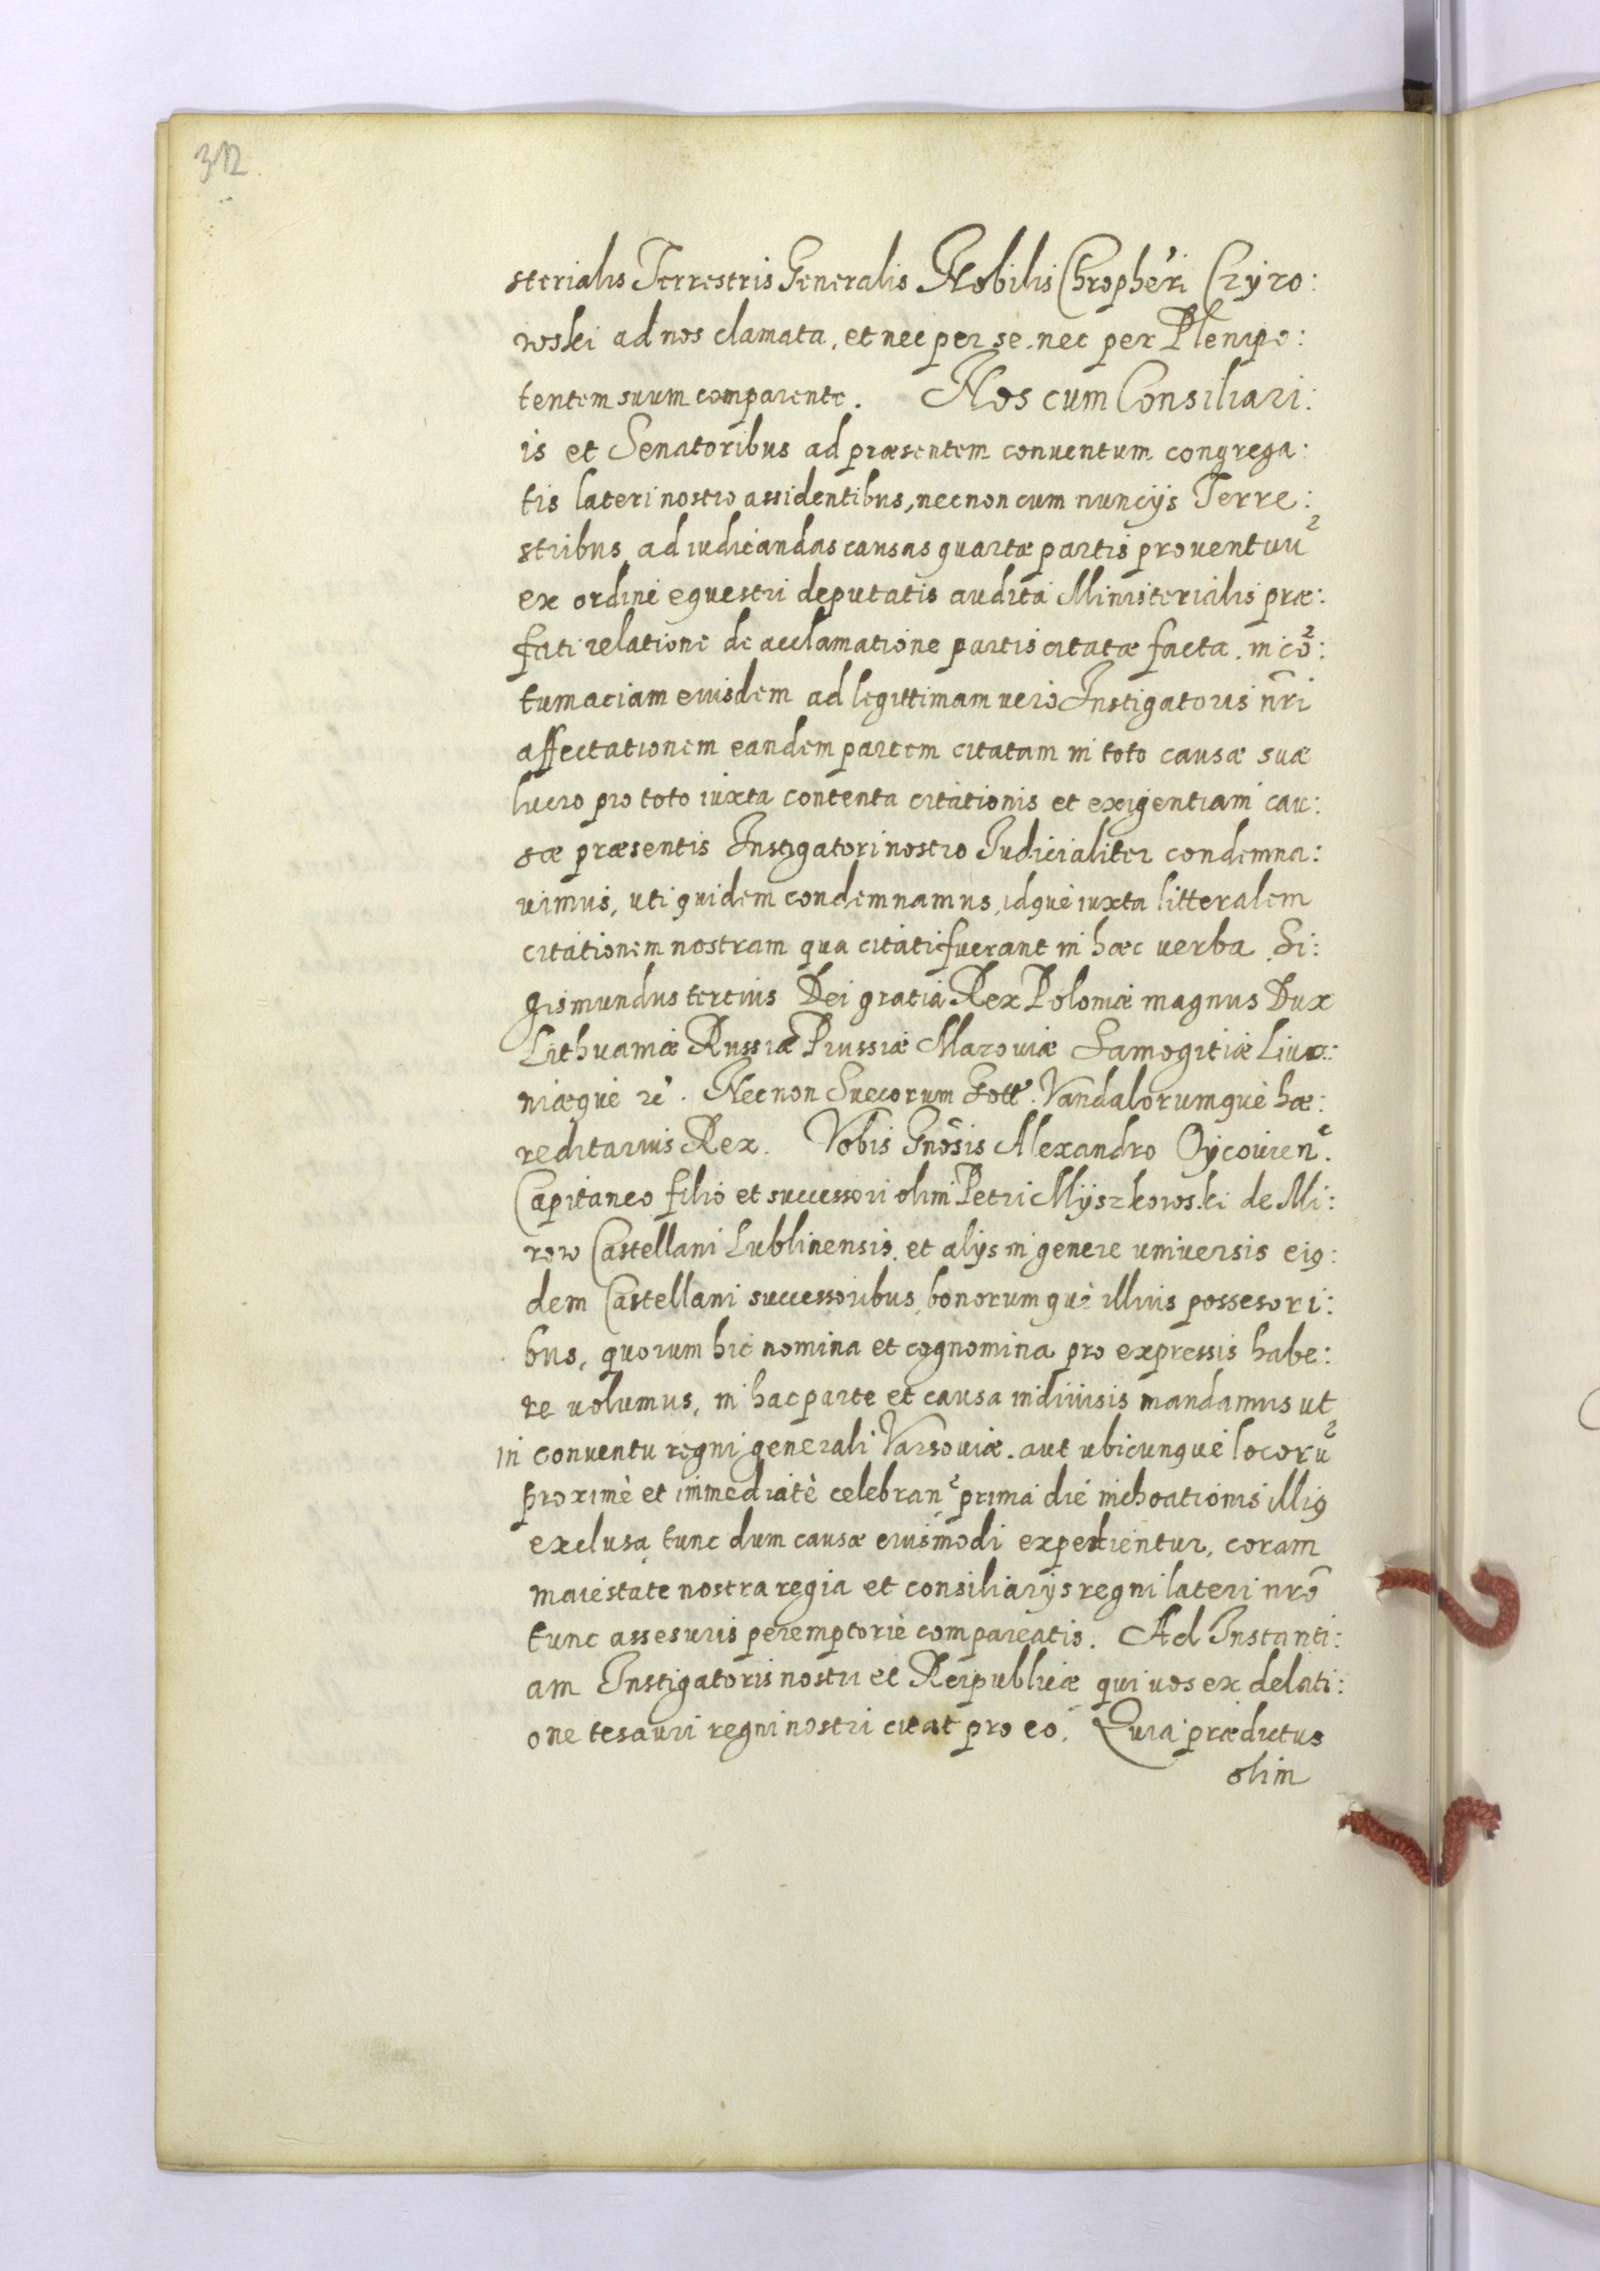 312
sterialis Terrestris Generalis Nobilis Chrophe'ri Czyzo:
wski ad nos clamata, et nec per se. nec per Plenipo:
tentem suum comparente. Nos cum Consiliari:
is et Senatoribus ad præsentem conuentum congrega:
tis lateri nostro assidentibus, necnon cum nuncijs Terre:
stribus ad iudicandas causas quartæ partis prouentuu̅
ex ordine equestri deputatis audita Ministerialis præ:
fati relatione de acclamatione partis citatæ facta. in co̅:
tumaciam eiusdem ad legittimam vero Instigatoris nr̅i
affectationem eandem partem citatam in toto causæ suæ
lucro pro toto iuxta contenta citationis et exigentiam cau:
sæ præsentis Instigatori nostro Judicialiter condemna:
uimus, uti quidem condemnamus, idque iuxta litteralem
citationem nostram qua citati fuerant in hæc verba Si:
gismundus tertius Dei gratia Rex Poloniæ magnus Dux
Lithuaniæ Russiæ Prussiæ Mazouiæ Samogitiæ Liuo:
niæque zc. Necnon Suecorum Gott. Vandalorumque hæ:
reditarius Rex. Vobis Gno̅sis Alexandro Oycouien.
Capitaneo filio et successori olim Petri Myszkowski de Mi:
row Castellani Lublinensis. et alijs in genere uniuersis eiꝰ:
dem Castellani successoribus, bonorumque illius possesori:
bus, quorum hic nomina et cognomina pro expressis habe:
re volumus, in hac parte et causa indiuisis mandamus ut
in conuentu regni generali Varsouiæ. aut ubicunque locoru̅
proximè et immediatè celebran. prima die inchoationis illiꝰ
exclusa tunc dum causæ eiusmodi expedientur, coram
maiestate nostra regia et consiliarijs regni lateri nro̅
tunc assesuris peremptoriè compareatis. Ad Instanti:
am Instigatoris nostri et Reipublicæ qui vos ex delati:
one tesauri regni nostri citat pro eo. Quia prædictus
olim